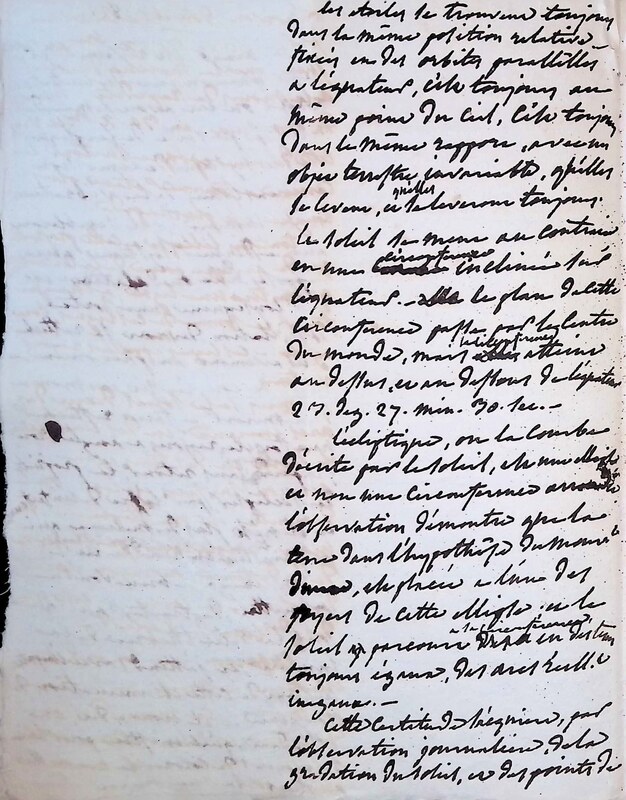 les etoiles se trouvent toujours
dans la même position relative
fixées en des orbites paralelles
a l'équateur, c'este toujours au
même point du Ciel, C'este toujours
dans le même rapport, avec un
objet terrestre invariable, qu'elles
se levent, et qu'elles se leveront toujours.
Le soleil se meut au contraire
en une circonference inclinée sur
l'équateur. - le plan de cette
circonference passe par le Centre
du monde, mais atteint
au dessus, et au dessous de l'equateur
23. deg. 27. min. 30. sec. -
L'écliptique, ou la Courbe
décrite par le soleil, est une ellipse
et non une circonference
l'observation démontre que la
terre dans l'hypothèse du mouve
est placée a l'un des
foyers de cette ellipse. et le
soleil parcourt a la circonference en des tems
toujours égaux, des arcs réelle
inegaux. -
Cette Certitude s'acquiere, par
l'observation journaliere, de la
gradation du soleil, et des points de